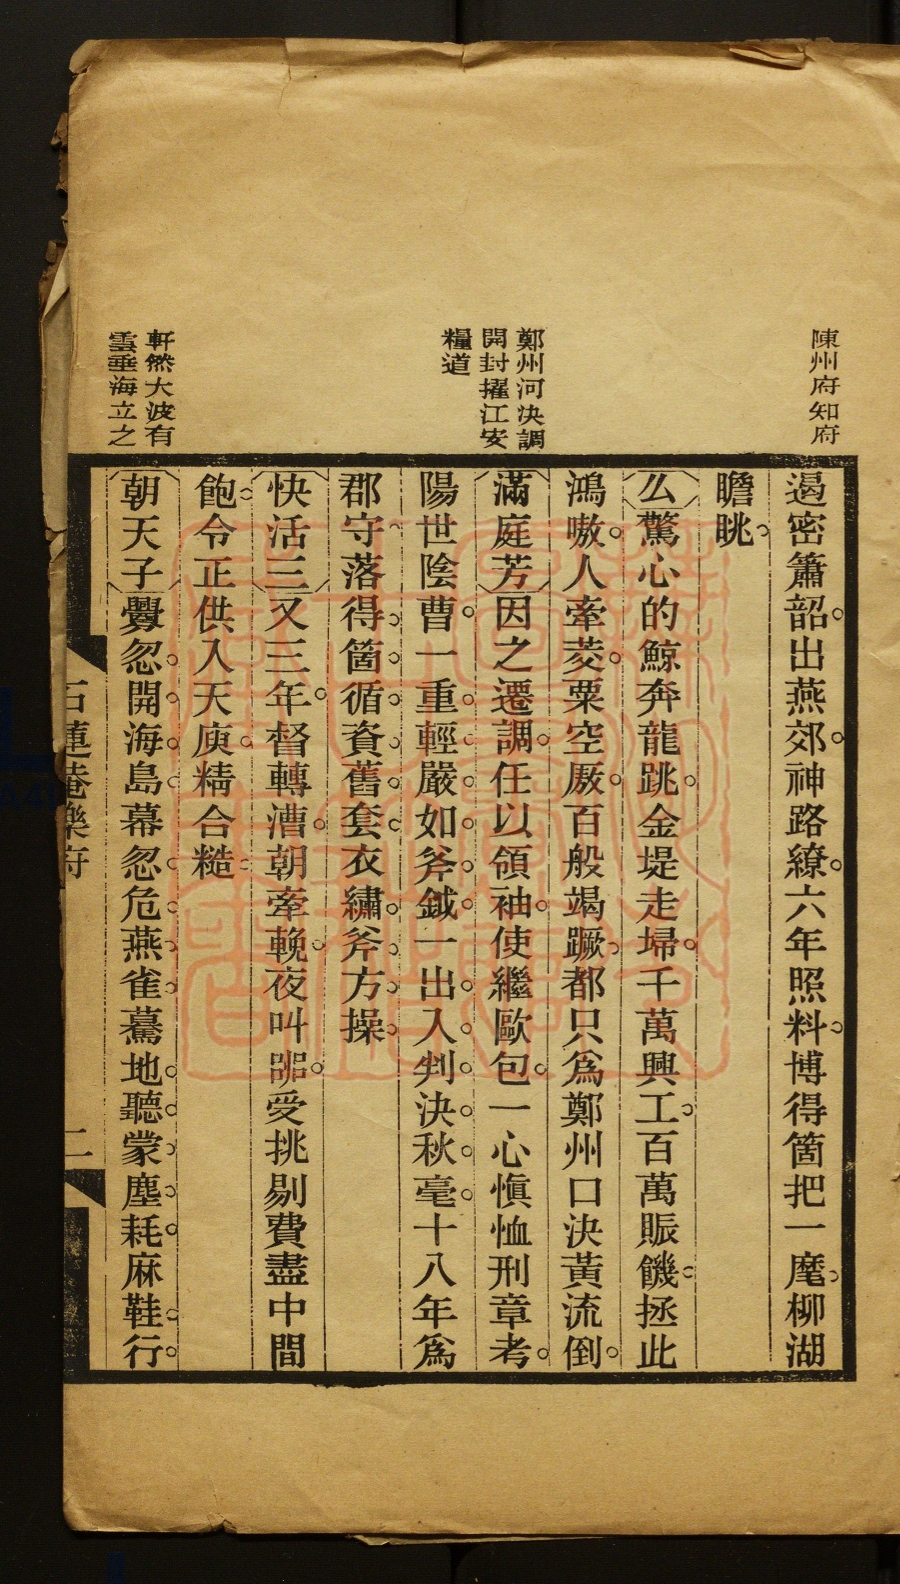 陳州府知府
鄭州河決調
開封擢江安
糧道
軒然大波有
雲垂海立之
遏密簫韶出燕郊神路繚六年照料博得箇把一麾柳湖
瞻眺
么驚心的鯨奔龍跳金堤走埽千萬興工百萬賑饑拯此
鴻嗷人牽茭粟空厫百般竭蹶都只爲鄭州口決黃流倒
滿庭芳因之遷調任以領袖使繼歐包一心愼恤刑章考
陽世陰曹一重輕嚴如斧鉞一出入判決秋毫十八年爲
郡守落得箇循資舊套衣繡斧方操
快活三又三年督轉漕朝牽輓夜叫嘂受挑剔費盡中間
飽令正供入天庾精合糙
朝天子釁忽開海島幕忽危燕雀驀地聽蒙塵耗麻鞋行
石蓮菴樂府
二